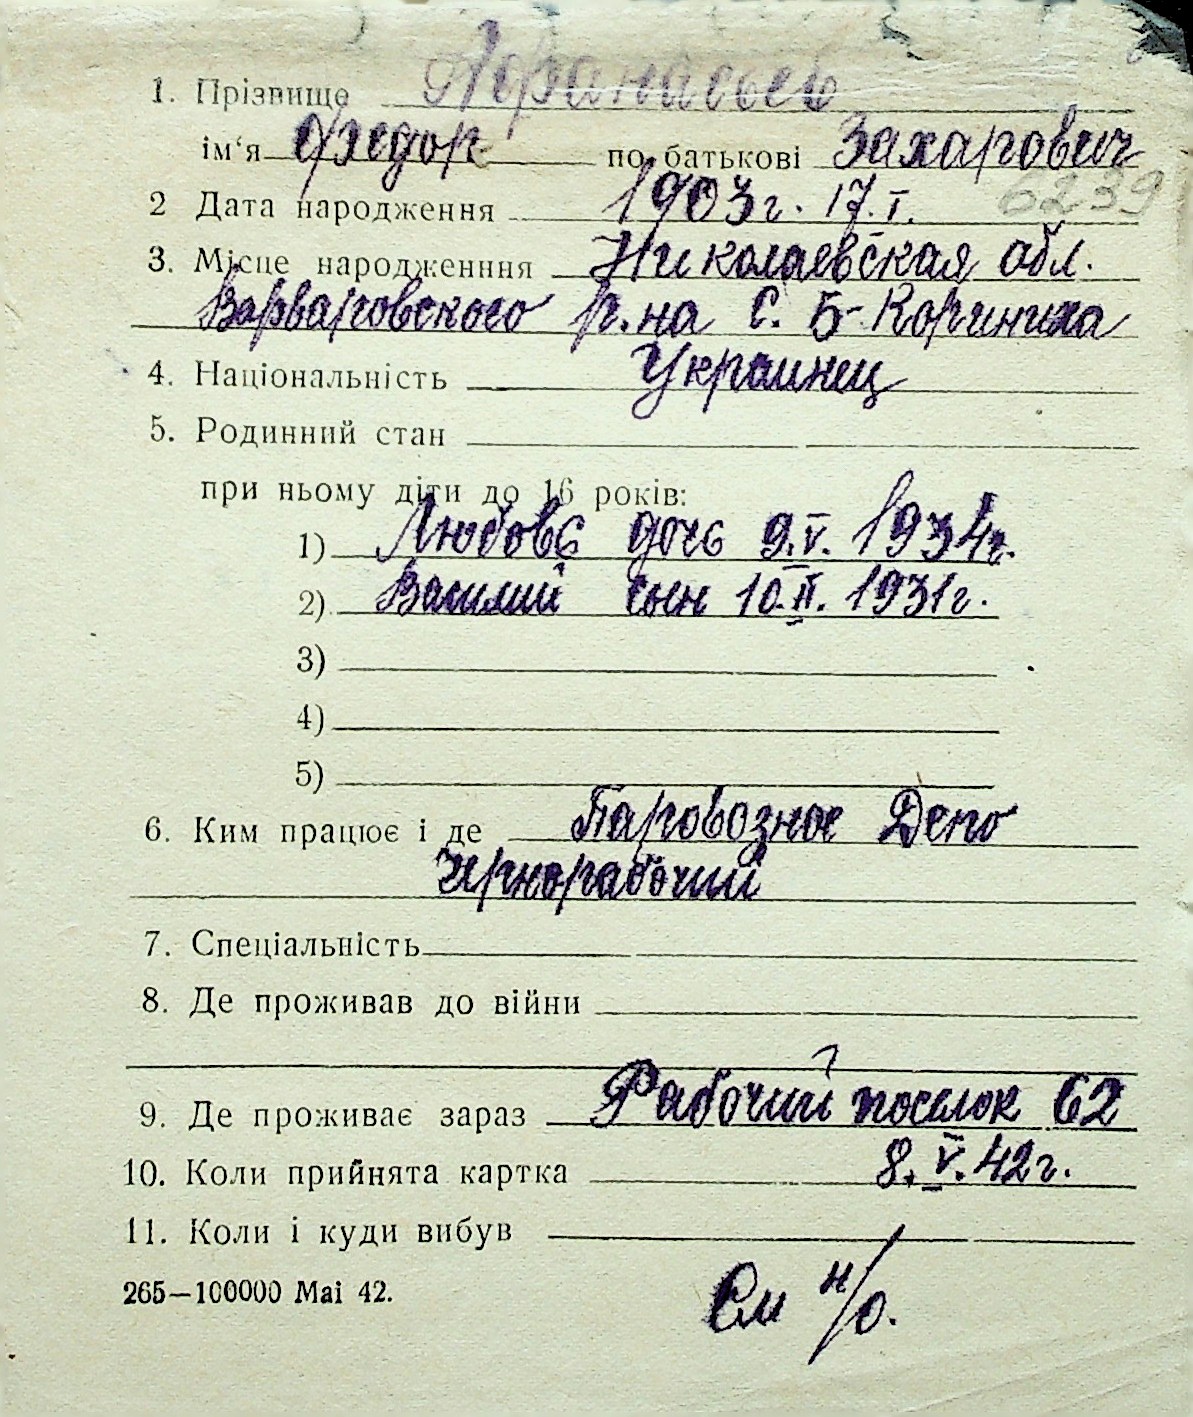 1. Прізвище Афанасьев
ім'я Федор по батькові Захарович
6239
2 Дата народження 1903г. 17.I.
3. Місце народженння Николаевская обл.
Варваровского р.на с. Б-Корениха
4. Національність Украинец
5. Родинний стан
при ньому діти до 16 років:
1) Любовь дочь 9.V. 1934г.
2) Василий сын 10.II. 1931г.
3)
4)
5)
6. Ким працює і де Паровозное Депо
Чернорабочий
7. Спеціальність
8. Де проживав до війни
9. Де проживає зараз Рабочий поселок 62
10. Коли прийнята картка 8.V.42г.
11. Коли і куди вибув
265—100000 Mai 42.
См н/о.